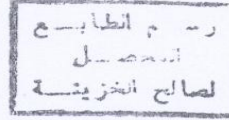 رسم الطابع
المحصل
لصالح الخزينة